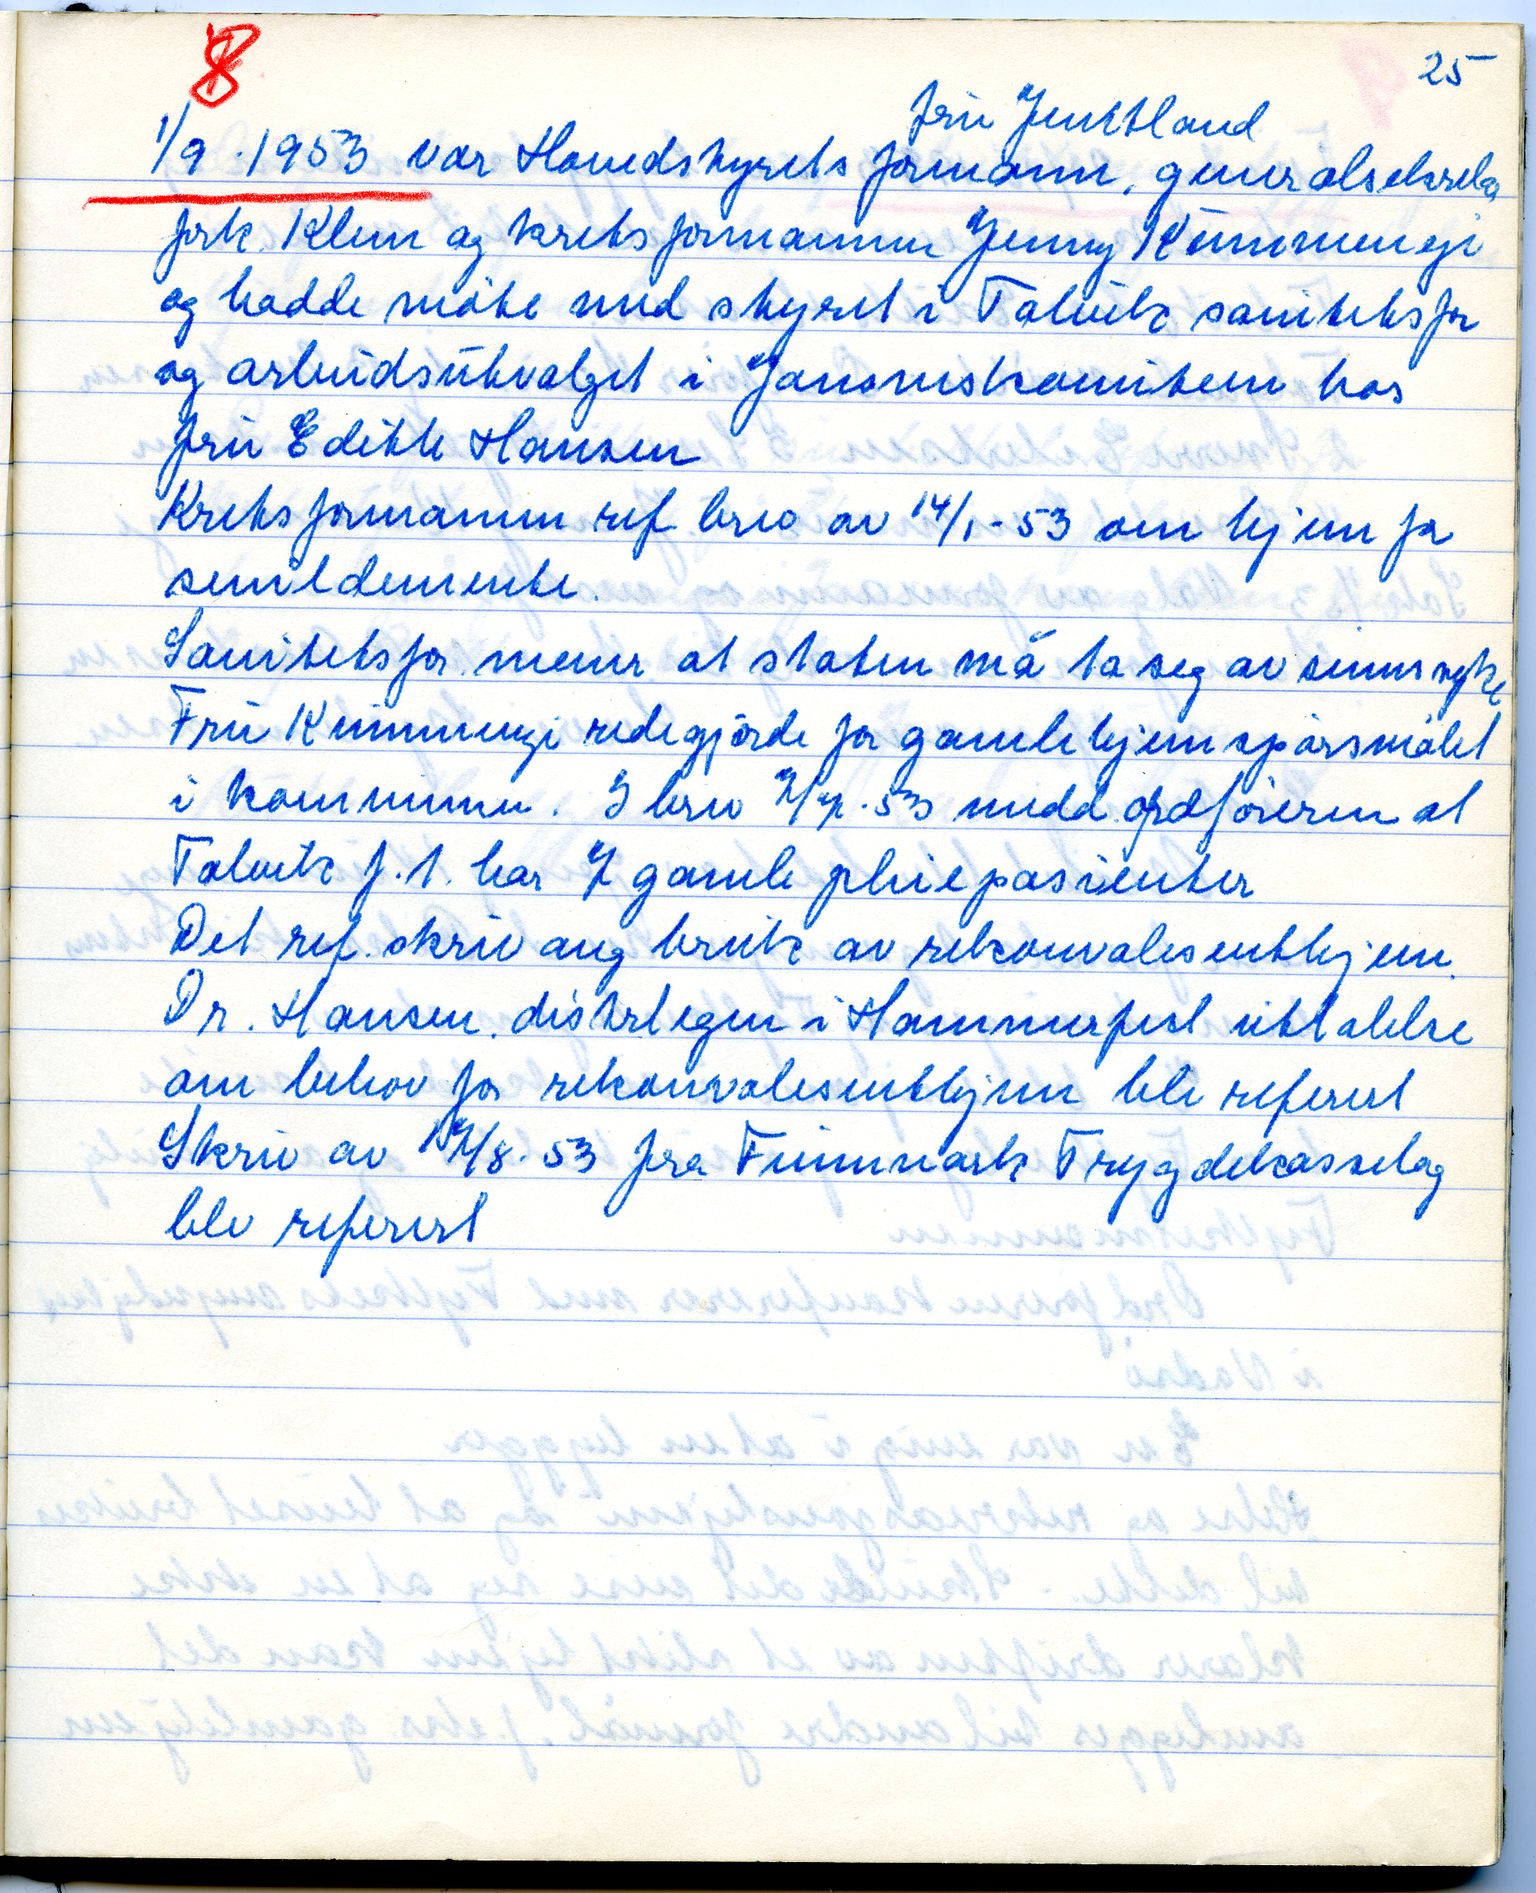 8
25
fru Jenttland
1/9.1953 var Hovedstyrets formann, generalsekretær
frk. Klem og kretsformannen Jenny Kimmengi
og hadde möte med styret i Talvik sanitetsfor
og arbeidsutvalget i Jansrnskomiteen hos
fru Edithe Hansen
Kretsformannen ref brev av 14/1-53 om hjem for
senildemente.
Sanitetsfor mener at staten må ta seg av sinnssyke
Fru Kimmengi redegjorde for gamlehjemspörsmålet
i kommunen. I brev 2/7.53 medd. ordföreren at
Talvik f.t. har 7 gamle pleiepasienter
Det ref. skriv ang bruk av rekonvalesenthjem.
Dr. Hansen, distrlegen i Hammerfest uttalelse
om behov for rekonvalesenthjem ble referert
Skriv av 17/8.53 fra Finnmark Trygdekasselag
ble referert